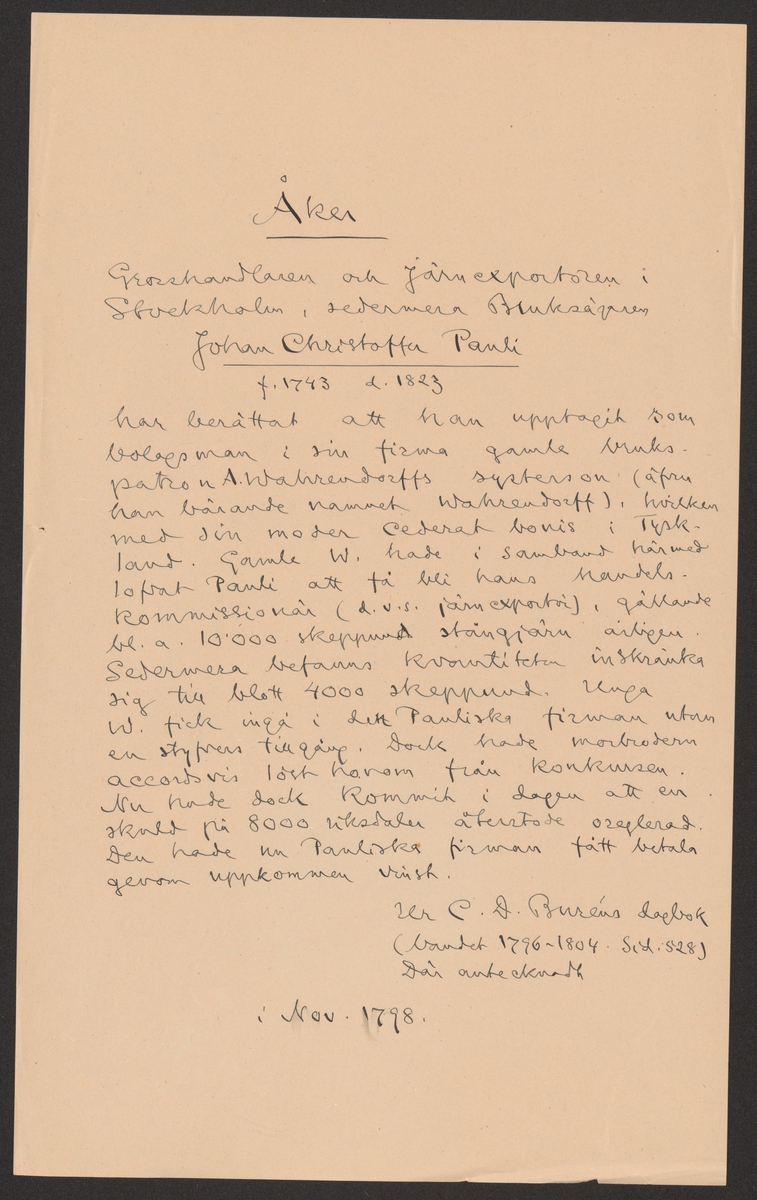 Åker
Grosshandlaren och Järnexportören i
Stockholm, sedermera Bruksägaren
Johan Christoffer Pauli
f. 1743 d. 1823
har berättat att han upptagit som
bolagsman i sin firma gamle bruks-
patron A. Wahrendorffs systerson (äfven
han bärande namnet Wahrendorff), hvilken
med sin moder cederat bonis i Tysk-
land. Gamle W. hade i samband härmed
lofvat Pauli att få bli hans handels-
kommissionär (d.v.s. järnexportör), gällande
bl. a. 10'000 skeppund stångjärn årligen.
Sedermera befanns kvantiteten inskränka
sig till blott 4000 skeppund. Unga
W. fick ingå i dett Pauliska firman utan
en styfvers tillgång. Dock hade morbrodern
accordsvis löst honom från konkursen.
Nu hade dock kommit i dagen att en
skuld på 8000 riksdaler återstode oreglerad.
Den hade nu Pauliska firman fått betala
genom uppkommen vinst.
Ur C. D. Buréns dagbok
(bandet 1796-1804. Sid. 528)
Där antecknadt
i Nov. 1798.